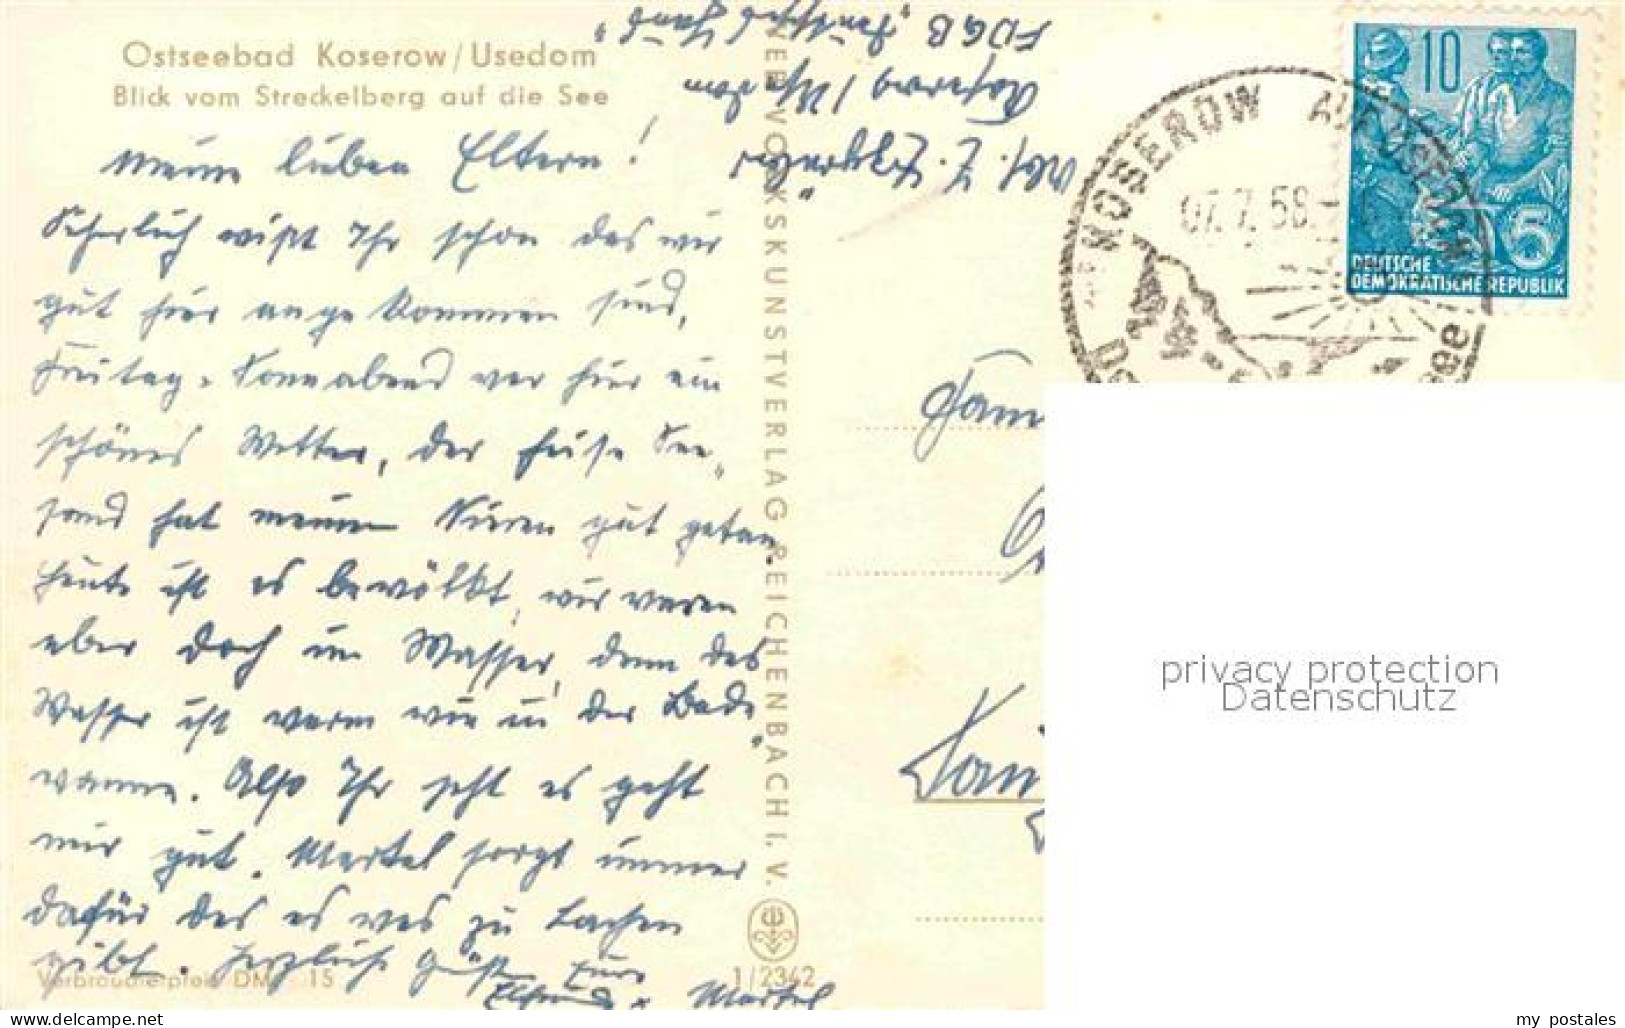 Ostseebad Koserow/Usedom
Blick vom Streckelberg auf die See
Meine lieben Eltern!
Sicherlich wißt Ihr schon das wir
gut hier angekommen sind,
Freitag - Sonnabend war hier ein
schönes Wetter, der heise See„
sand hat meinen Nieren gut getan.
Heute ist es bewölkt, wir waren
aber doch im Wasser, denn das
Wasser ist warm wie in der Bade„
wanne. Also Ihr seht es geht
mir gut. Martel sorgt immer
dafür das es was zu Lachen
gibt. Herzliche Grüße Eure
u. Martel
Verbraucherpreis DM -.15
1/2342
VOLKSKUNSTVERLAG REICHENBACH I. V.
Abs. E.
Koserow / Usedom
FDGB
KOSEROW AUF USEDOM
07.7.58
10
5
DEUTSCHE
DEMOKRATISCHE REPUBLIK
Fam
privacy protection
Datenschutz
Quelle: www.delcampe.net
my_postales